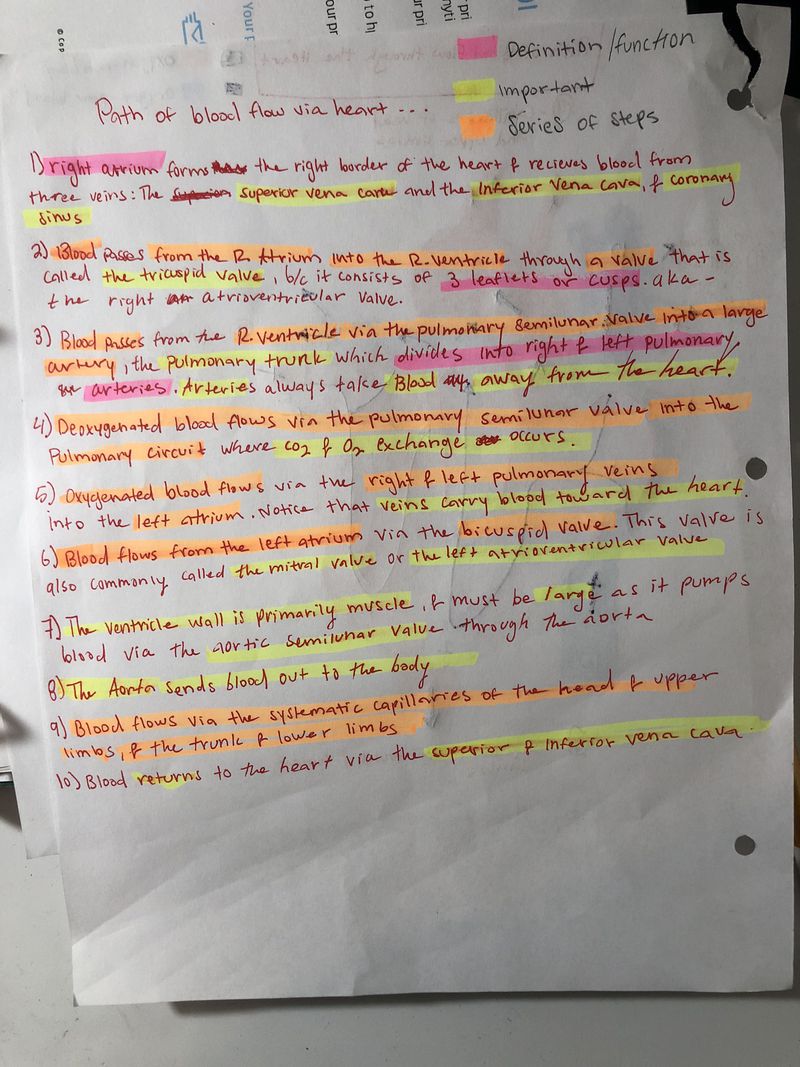 Definition/function
Important
Series of steps
Path of blood flow via heart ...
1) right atrium forms the right border of the heart & recieves blood from
three veins: The superior vena cava and the Inferior Vena Cava, & coronary
sinus
2) Blood passes from the R. Atrium into the R. ventricle through a valve that is
called the tricuspid valve, b/c it consists of 3 leaflets or cusps. aka -
the right atrioventricular valve.
3) Blood passes from the R. ventricle via the pulmonary semilunar valve into a large
artery, the pulmonary trunk which divides into right & left pulmonary
arteries. Arteries always take Blood away from the heart.
4) Deoxygenated blood flows via the pulmonary semilunar valve into the
Pulmonary circuit where CO2 & O2 exchange occurs.
5) Oxygenated blood flows via the right & left pulmonary veins
into the left atrium. Notice that veins carry blood toward the heart.
6) Blood flows from the left atrium via the bicuspid valve. This valve is
also commonly called the mitral valve or the left atrioventricular valve
7) The ventricle wall is primarily muscle, & must be large as it pumps
blood via the aortic semilunar valve through the aorta
8) The Aorta sends blood out to the body
9) Blood flows via the systematic capillaries of the head & upper
limbs, & the trunk & lower limbs
10) Blood returns to the heart via the superior & Inferior vena cava.